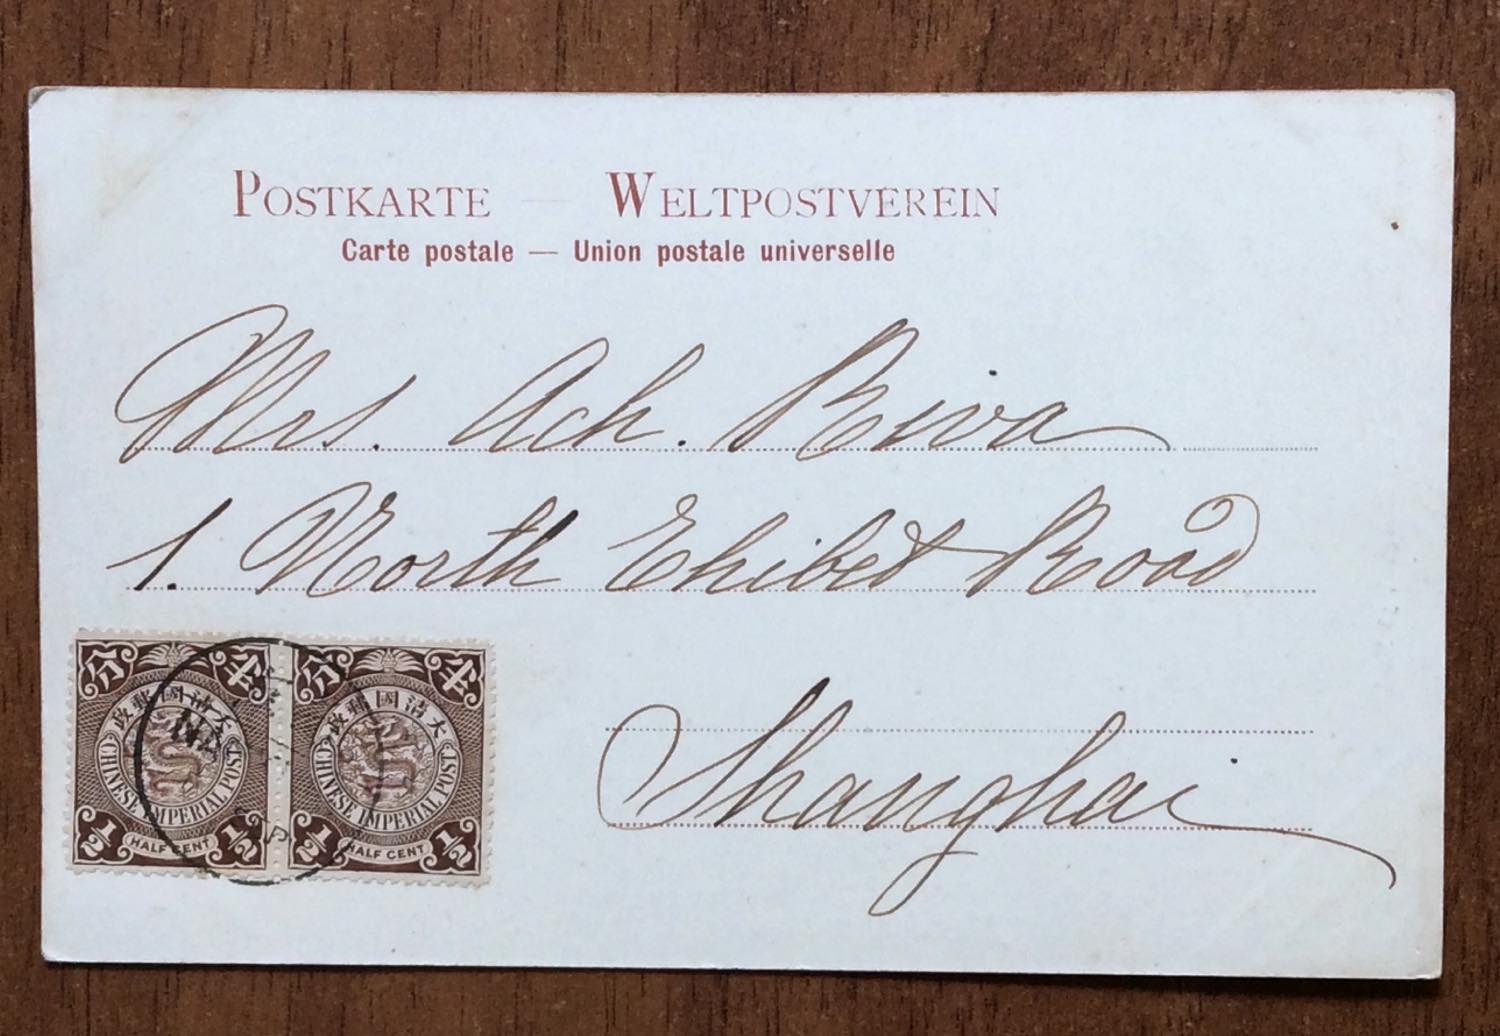 POSTKARTE — WELTPOSTVEREIN
Carte postale — Union postale universelle
Mrs. Ach. Riva
1. North Thibet Road
Shanghai
分 半 分 半
大清國郵政 大清國郵政
CHINESE IMPERIAL POST CHINESE IMPERIAL POST
1/2 HALF CENT 1/2 1/2 HALF CENT 1/2